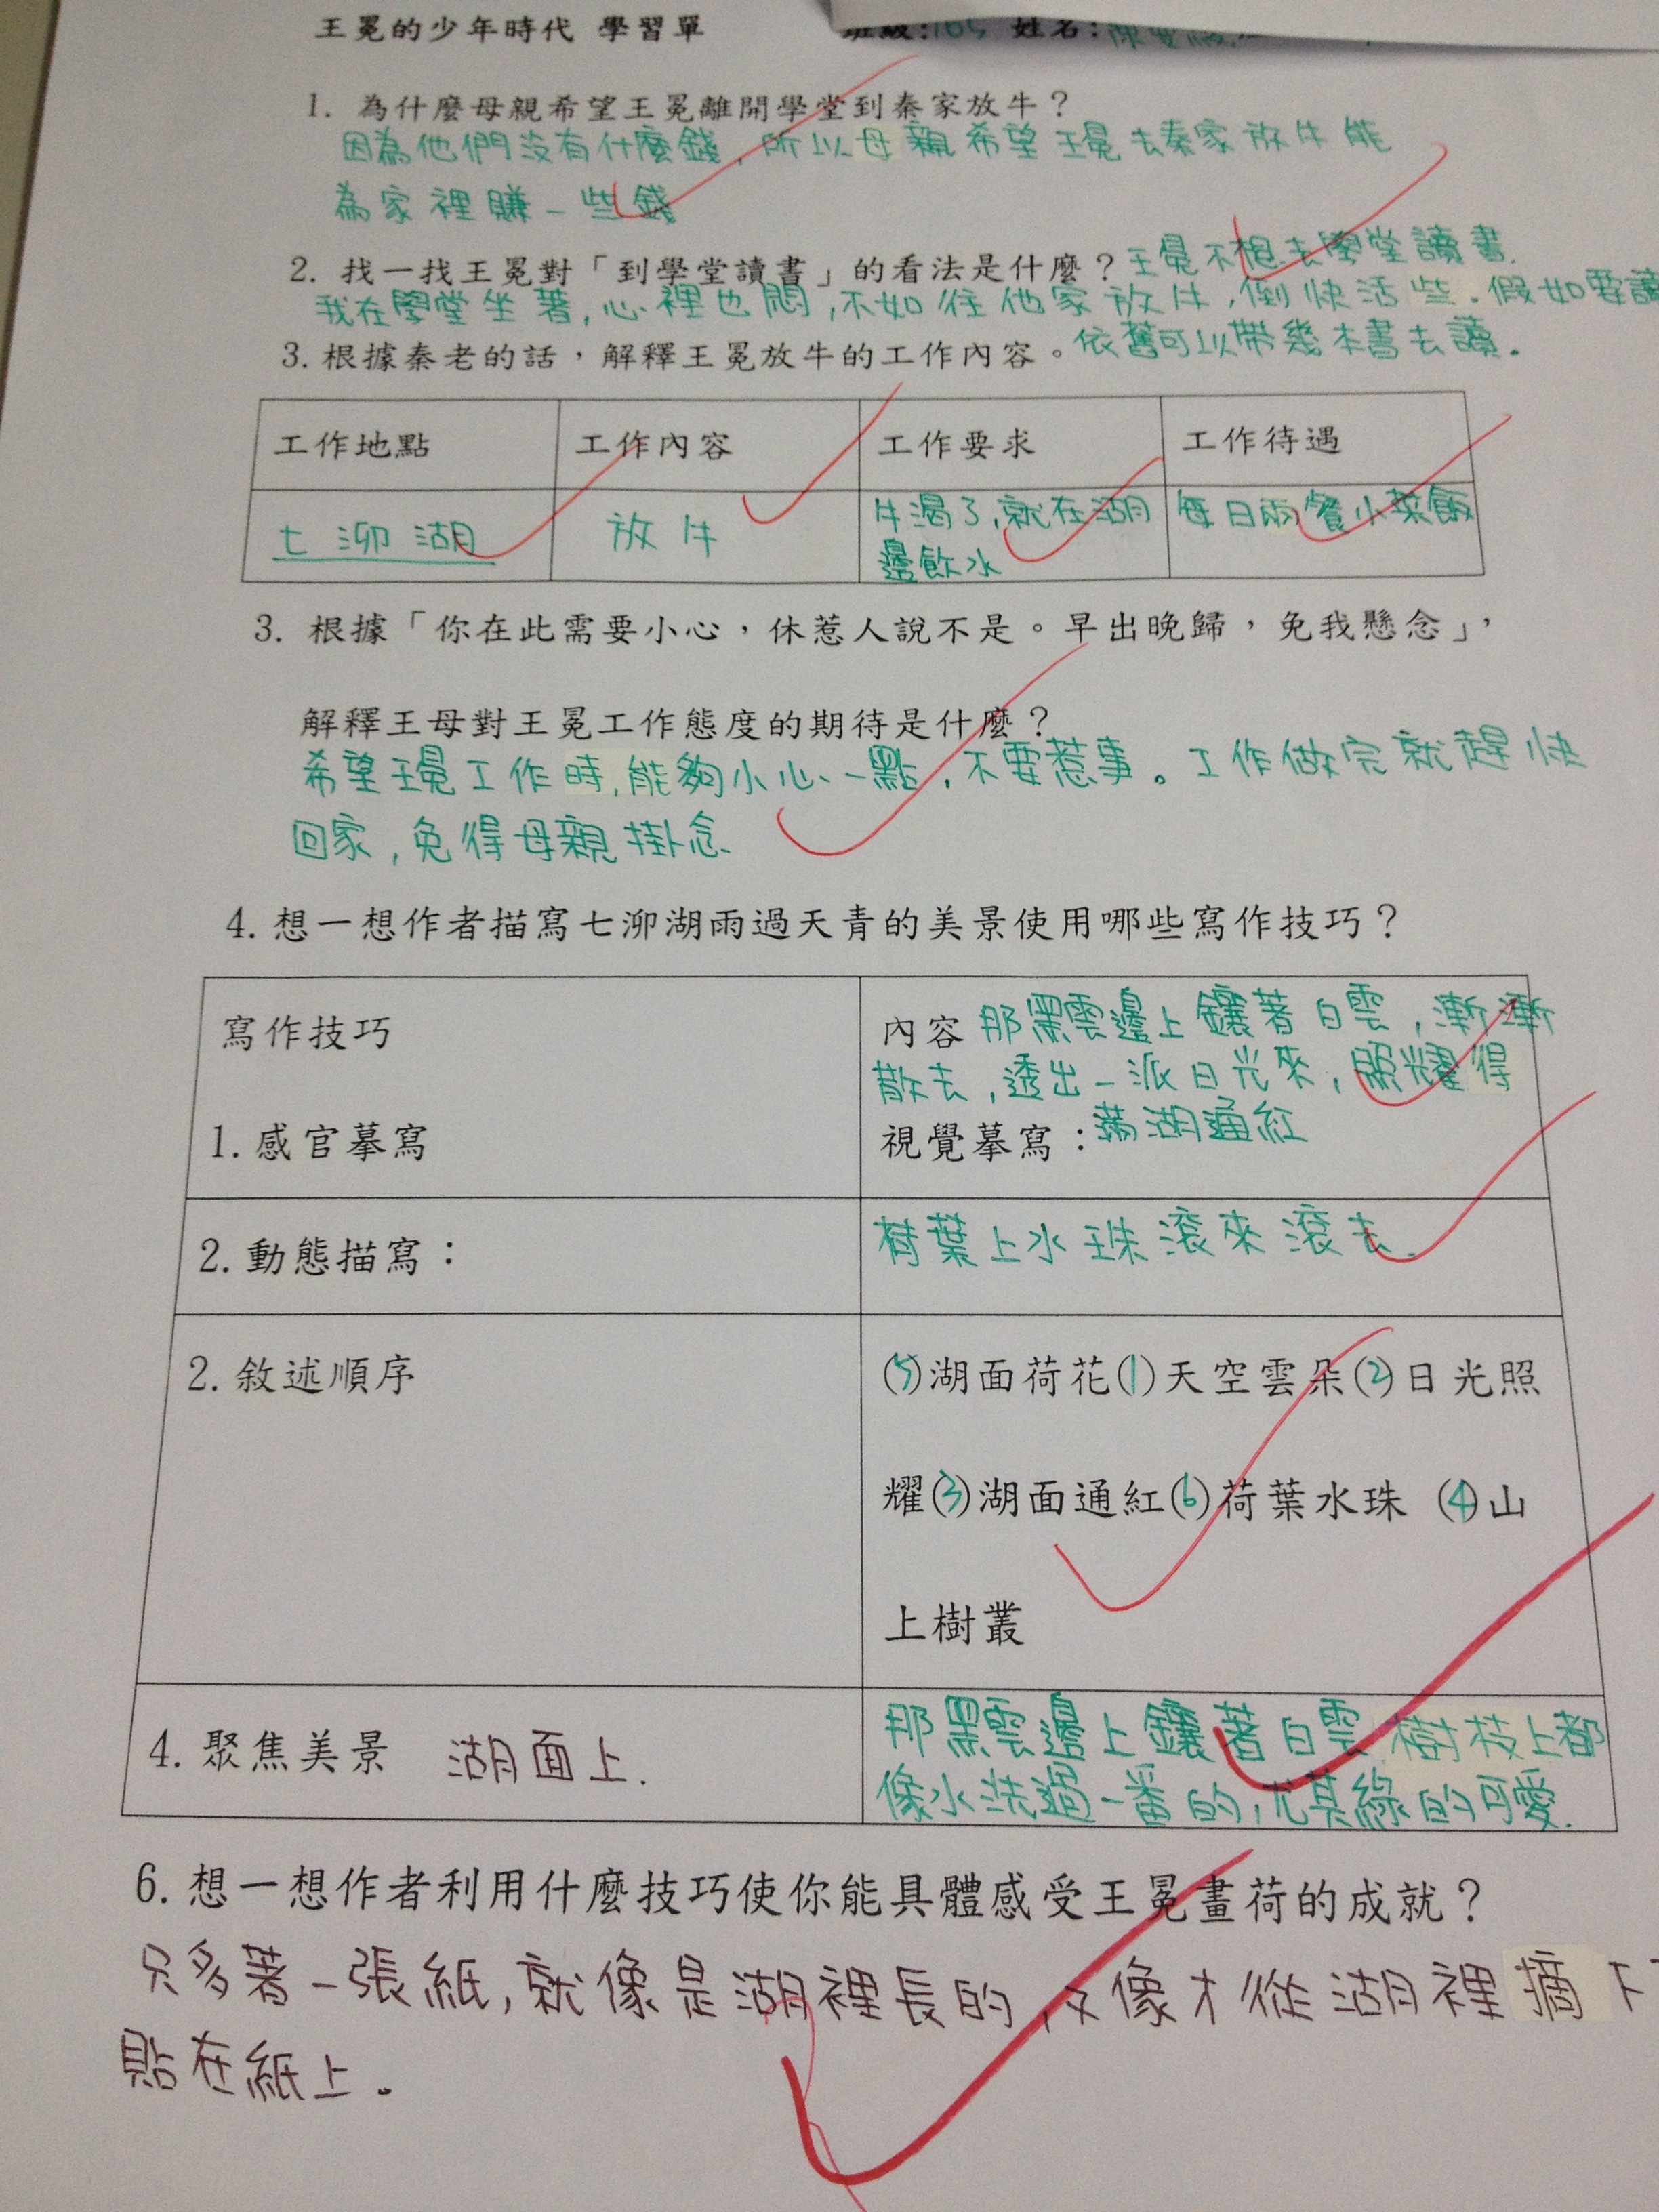 王冕的少年時代 學習單 班級:105 姓名:陳
1. 為什麼母親希望王冕離開學堂到秦家放牛？
因為他們沒有什麼錢，所以母親希望王冕去秦家放牛能
為家裡賺一些錢
2. 找一找王冕對「到學堂讀書」的看法是什麼？王冕不想去學堂讀書.
我在學堂坐著，心裡也悶，不如往他家放牛，倒快活些。假如要讀
依舊可以帶幾本書去讀。
3. 根據秦老的話，解釋王冕放牛的工作內容。
工作地點 工作內容 工作要求 工作待遇
七泖湖 放牛 牛渴了，就在湖 每日兩餐小菜飯
邊飲水
3. 根據「你在此需要小心，休惹人說不是。早出晚歸，免我懸念」，
解釋王母對王冕工作態度的期待是什麼？
希望王冕工作時，能夠小心一點，不要惹事。工作做完就趕快
回家，免得母親掛念.
4. 想一想作者描寫七泖湖雨過天青的美景使用哪些寫作技巧？
寫作技巧 內容 那黑雲邊上鑲著白雲，漸漸
散去，透出一派日光來，照耀得
1. 感官摹寫 視覺摹寫：滿湖通紅
2. 動態描寫： 荷葉上水珠滾來滾去.
2. 敘述順序 (5)湖面荷花(1)天空雲朵(2)日光照
耀(3)湖面通紅(6)荷葉水珠 (4)山
上樹叢
4. 聚焦美景 湖面上. 那黑雲邊上鑲著白雲 樹枝上都
像水洗過一番的，尤其綠的可愛.
6. 想一想作者利用什麼技巧使你能具體感受王冕畫荷的成就？
只多著一張紙，就像是湖裡長的，又像才從湖裡摘下
貼在紙上。